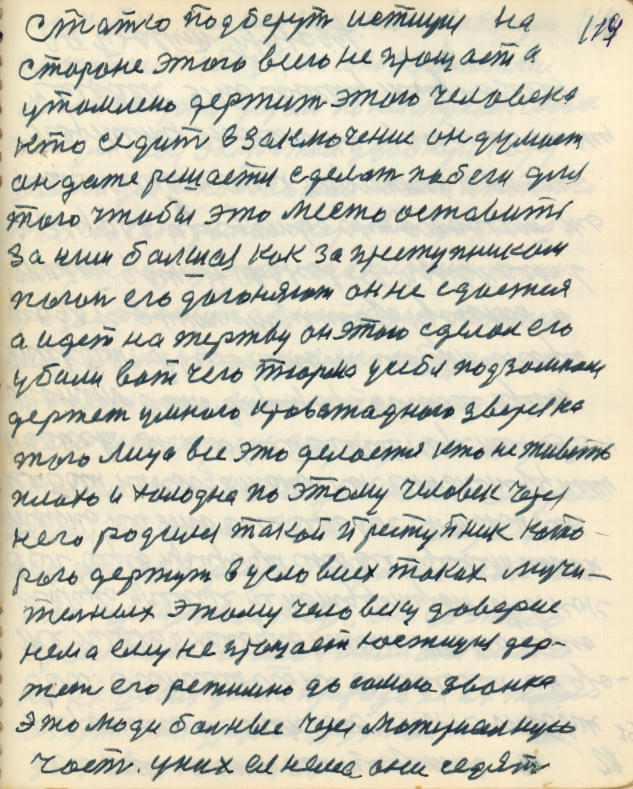 статью подберут истици на 119
стороне этого всего не прощает а
утомлено держит этого человека
кто седит в заключение он думает
он даже решается сделат побеги для
того чтобы это место оставить
за ним балшой как за преступником
погон его догоняют он не сдается
а идет на жертву он этого сделал его
убили вот чего тюрма у себя подзамком
держет умного кровожадного зверя ка
того лица все это делается кто не живеть
плохо и холодна по этому человек через
него родился такой преступник кото-
рого держут в условиях таких мучи-
телных этому человеку доверие
нема ему не прощает юстиция дер-
жет его режимно до самого звонка
это люди болные через материалную
част. у них ее нема они седят